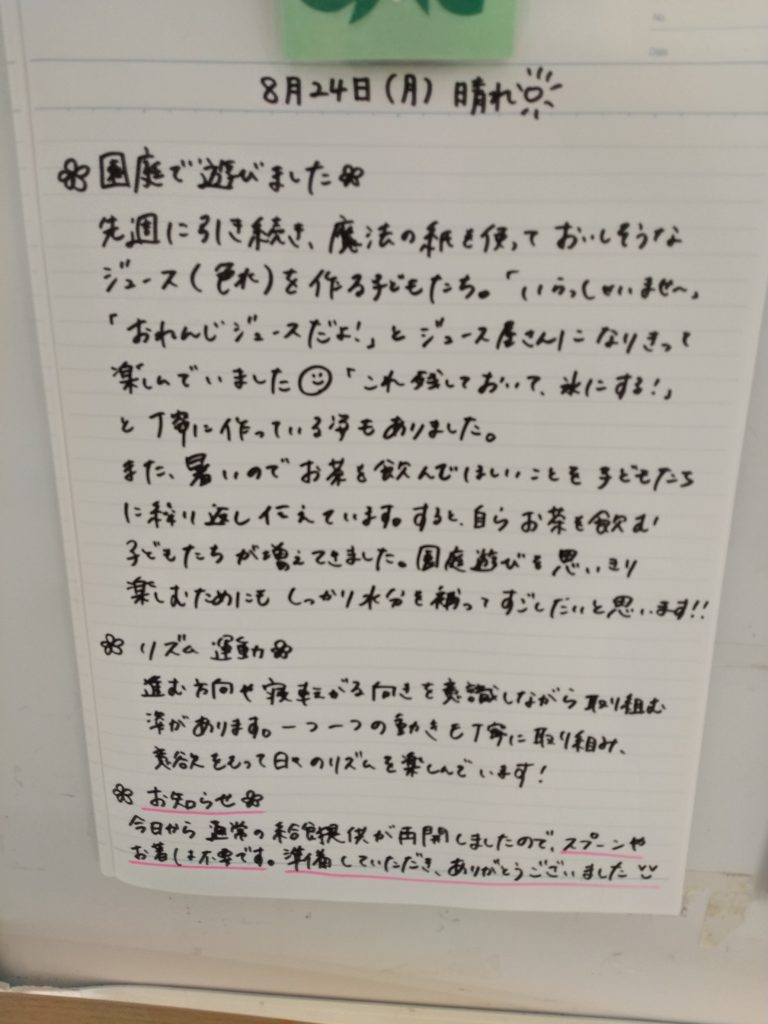 8月24日(月) 晴れ
園庭で遊びました
先週に引き続き、魔法の紙を使って おいしそうな
ジュース(色水)を作る子どもたち。「いらっしゃいませ〜」
「おれんじジュースだよ!」と ジュース屋さんに なりきって
楽しんでいました 「これ残しておいて、氷にする!」
と 丁寧に作っている姿もありました。
また、暑いので お茶を飲んでほしいことを 子どもたち
に繰り返し伝えています。すると、自らお茶を飲む
子どもたちが増えてきました。園庭遊びを思いきり
楽しむためにも しっかり水分を補ってすごしたいと思います!!
リズム運動
進む方向や寝転がる向きを意識しながら取り組む
姿があります。一つ一つの動きも丁寧に取り組み、
意欲をもって日々のリズムを楽しんでいます!
お知らせ
今日から 通常の給食提供が再開しましたので、スプーンや
お箸は不要です。準備していただき、ありがとうございました
No.
Date